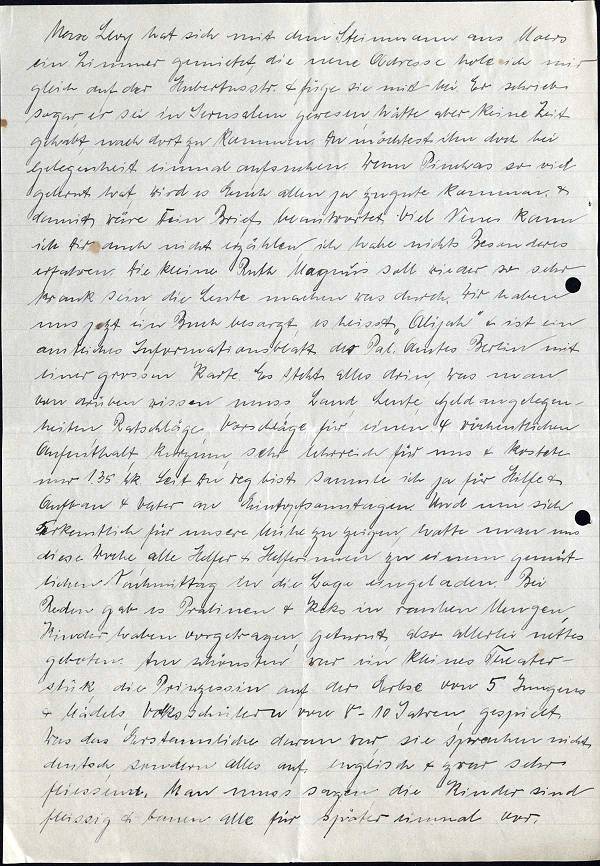 Levy hat sich mit dem Steinmann aus Moers
ein Zimmer gemietet, die neue Adresse hole ich mir
gleich auf der Hubertusstr. & füge sie mit bei. Er schrieb
sogar er sei in Jerusalem gewesen hätte aber keine Zeit
gehabt, nach dort zu kommen. Du möchtest ihn doch bei
Gelegenheit einmal aufsuchen. Wenn Pinchas so viel
gelernt hat, wird es Euch allen ja zugute kommen. &
damit wäre Dein Brief beantwortet. Viel Neues kann
ich Dir auch nicht erzählen ich habe nichts Besonderes
erfahren. Die kleine Ruth Magnus soll wieder so sehr
krank sein die Leute machen was durch. Wir haben
uns jetzt ein Buch besorgt, es heisst „Alijah" & ist ein
amtliches Informationsblatt des Pal. Amtes Berlin mit
einer grossen Karte. Es steht alles drin, was man
von drüben wissen muss Land Leute Geldangelegen-
heiten Ratschläge Vorschläge für einen 4 wöchentlichen
Aufenthalt kurzum, sehr lehrreich für uns & kostete
nur 1.35 Mk. Seit Du weg bist sammle ich ja für Hilfe &
Aufbau & Vater an Eintopfsonntagen. Und um sich
erkentlich für unsere Mühe zu zeigen, hatte man uns
diese Woche alle Helfer & Helferinnen zu einem gemüt-
lichen Nachmittag in die Loge eingeladen. Bei
Reden gab es Pralinen & Keks in rauhen Mengen,
Kinder haben vorgetragen, geturnt, also allerlei nettes
geboten. Am schönsten war ein kleines Theater-
stük die Prinzessin auf der Erbse von 5 Jungens
& Mädels Volksschülern von 8-10 Jahren gespielt
Was das Erstaunliche daran war, sie sprachen nicht
deutsch sondern alles auf englisch & zwar sehr
fliessend. Man muss sagen die Kinder sind
fleissig & bauen alle für später einmal vor.